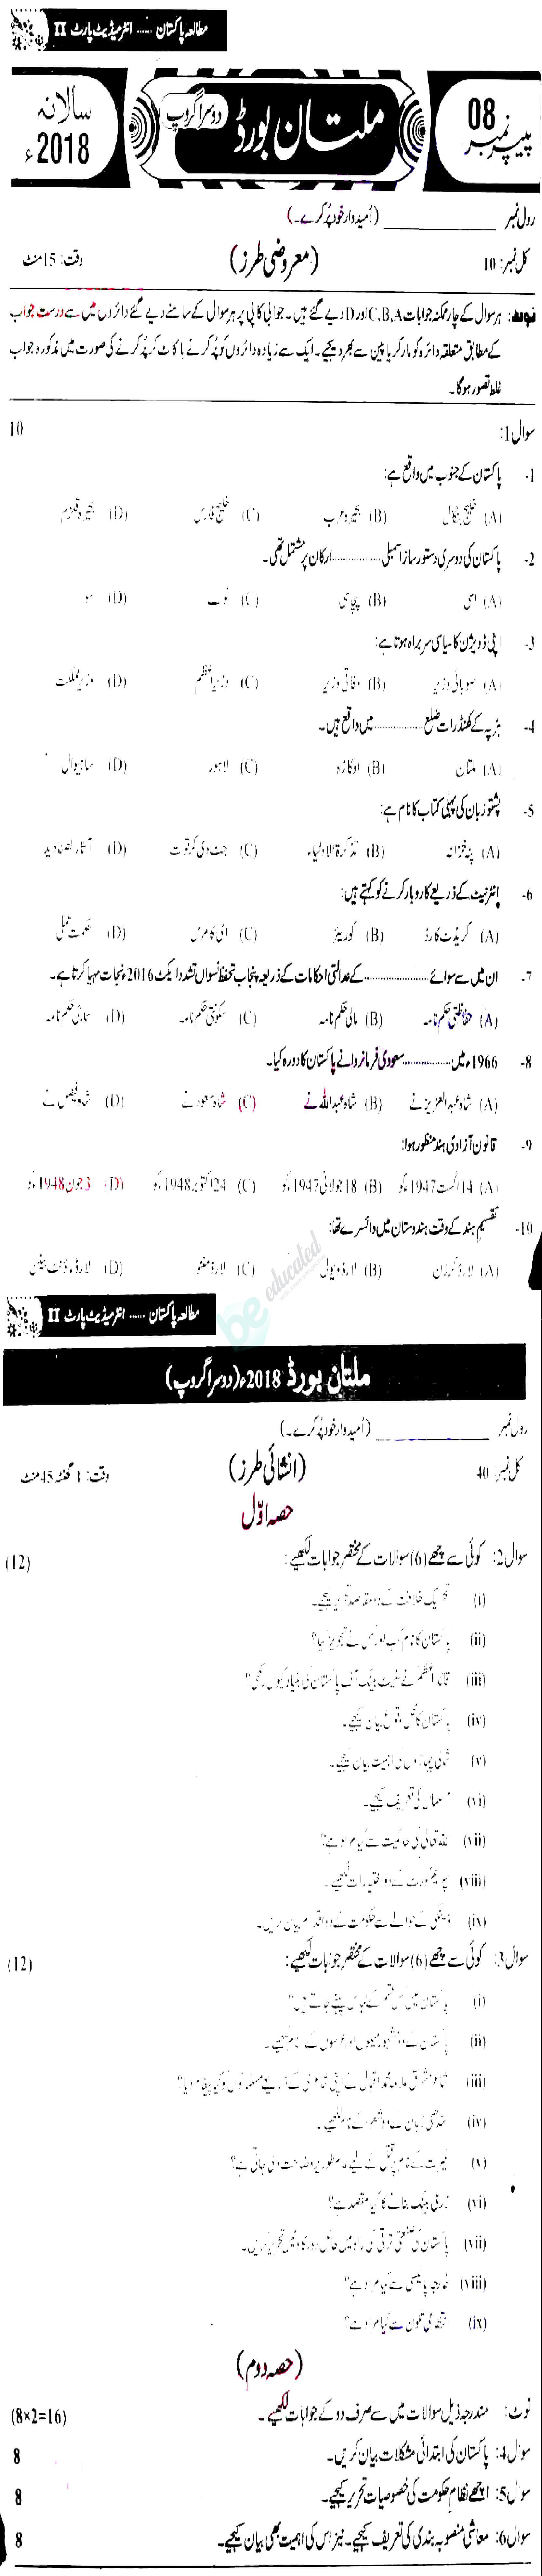 مطالعہ پاکستان ...... انٹرمیڈیٹ پارٹ II
پیپر نمبر 08
ملتان بورڈ دوسرا گروپ
سالانہ 2018ء
رول نمبر ____________ (اُمیدوار خود پُر کرے۔)
کل نمبر: 10 (معروضی طرز) وقت: 15 منٹ
نوٹ: ہر سوال کے چار ممکنہ جوابات C,B,A اور D دیے گئے ہیں۔ جوابی کاپی پر ہر سوال کے سامنے دیے گئے دائروں میں سے درست جواب
کے مطابق متعلقہ دائرہ کو مارکر یا پین سے بھر دیجیے۔ ایک سے زیادہ دائروں کو پُر کرنے یا کاٹ کر پُر کرنے کی صورت میں مذکورہ جواب
غلط تصور ہوگا۔
سوال 1: 10
1- پاکستان کے جنوب میں واقع ہے:
(A) خلیج بنگال (B) بحیرہ عرب (C) خلیج فارس (D) بحیرہ قلزم
2- پاکستان کی دوسری دستور ساز اسمبلی ............... ارکان پر مشتمل تھی۔
(A) اسی (B) پچاسی (C) نوے (D) سو
3- اپنی ڈویژن کا سیاسی سربراہ ہوتا ہے:
(A) صوبائی وزیر (B) وفاقی وزیر (C) وزیراعظم (D) وزیر مملکت
4- ہڑپہ کے کھنڈرات ضلع ............... میں واقع ہیں۔
(A) ملتان (B) اوکاڑہ (C) لاہور (D) ساہیوال
5- پشتو زبان کی پہلی کتاب کا نام ہے:
(A) پٹہ خزانہ (B) تذکرۃ الاولیاء (C) جٹ دی کرتوت (D) آثار الصنادید
6- انٹرنیٹ کے ذریعے کاروبار کرنے کو کہتے ہیں:
(A) کریڈٹ کارڈ (B) کوریئر (C) ای کامرس (D) حکمت عملی
7- ان میں سے سوائے .................... کے عدالتی احکامات کے ذریعہ پنجاب تحفظ نسواں تشدد ایکٹ 2016ء نجات مہیا کرتا ہے۔
(A) حفاظتی حکم نامہ (B) مالی حکم نامہ (C) سکونتی حکم نامہ (D) سماجی حکم نامہ
8- 1966ء میں ............... سعودی فرمانروا نے پاکستان کا دورہ کیا۔
(A) شاہ عبدالعزیز نے (B) شاہ عبداللہ نے (C) شاہ سعود نے (D) شاہ فیصل نے
9- قانون آزادی ہند منظور ہوا:
(A) 14 اگست 1947ء کو (B) 18 جولائی 1947ء کو (C) 24 اکتوبر 1948ء کو (D) 3 جون 1948ء کو
10- تقسیم ہند کے وقت ہندوستان میں وائسرے تھا:
(A) لارڈ کرزن (B) لارڈ ویول (C) لارڈ منٹو (D) لارڈ ماؤنٹ بیٹن
be educated
مطالعہ پاکستان ...... انٹرمیڈیٹ پارٹ II
ملتان بورڈ 2018ء (دوسرا گروپ)
رول نمبر ____________ (اُمیدوار خود پُر کرے۔)
کل نمبر: 40 (انشائی طرز) وقت: 1 گھنٹہ 45 منٹ
حصہ اوّل
سوال 2: کوئی سے چھے (6) سوالات کے مختصر جوابات لکھیے: (12)
(i) تحریک خلافت کے دو مقاصد تحریر کیجیے۔
(ii) پاکستان کا نام کب اور کس نے تجویز کیا؟
(iii) قائد اعظم نے سٹیٹ بینک آف پاکستان کی بنیاد کیوں رکھی؟
(iv) پاکستان کا محل وقوع بیان کیجیے۔
(v) شمالی پہاڑوں کی اہمیت بیان کیجیے۔
(vi) مسلمان کی تعریف کیجیے۔
(vii) اللہ تعالیٰ کی حاکمیت سے کیا مراد ہے؟
(viii) سپریم کورٹ کے دو اختیارات لکھیے۔
(ix) ڈینگی کے حوالے سے حکومت کے دو اقدام بیان کریں۔
سوال 3: کوئی سے چھے (6) سوالات کے مختصر جوابات لکھیے: (12)
(i) پاکستان میں کس قسم کے لباس پہنے جاتے ہیں؟
(ii) پاکستان کے دو مشہور میلوں اور عرسوں کے نام لکھیے۔
(iii) شاعر مشرق علامہ محمد اقبال نے اپنی شاعری کے ذریعے مسلمانوں کو کیا پیغام دیا؟
(iv) سندھی زبان کے دو شعرا کے نام لکھیے۔
(v) غیرت کے نام پر قتل کے لیے عام طور پر وضاحت دی جاتی ہے؟
(vi) زرعی بینک بنانے کا کیا مقصد ہے؟
(vii) پاکستان کی صنعتی ترقی کی راہ میں حائل دو رکاوٹیں تحریر کریں۔
(viii) خارجہ پالیسی سے کیا مراد ہے؟
(ix) انتظامی تکون سے کیا مراد ہے؟
(حصہ دوم)
نوٹ: مندرجہ ذیل سوالات میں سے صرف دو کے جوابات لکھیے۔ (8×2=16)
سوال 4: پاکستان کی ابتدائی مشکلات بیان کریں۔ 8
سوال 5: اچھے نظام حکومت کی خصوصیات تحریر کیجیے۔ 8
سوال 6: معاشی منصوبہ بندی کی تعریف کیجیے۔ نیز اس کی اہمیت بھی بیان کیجیے۔ 8